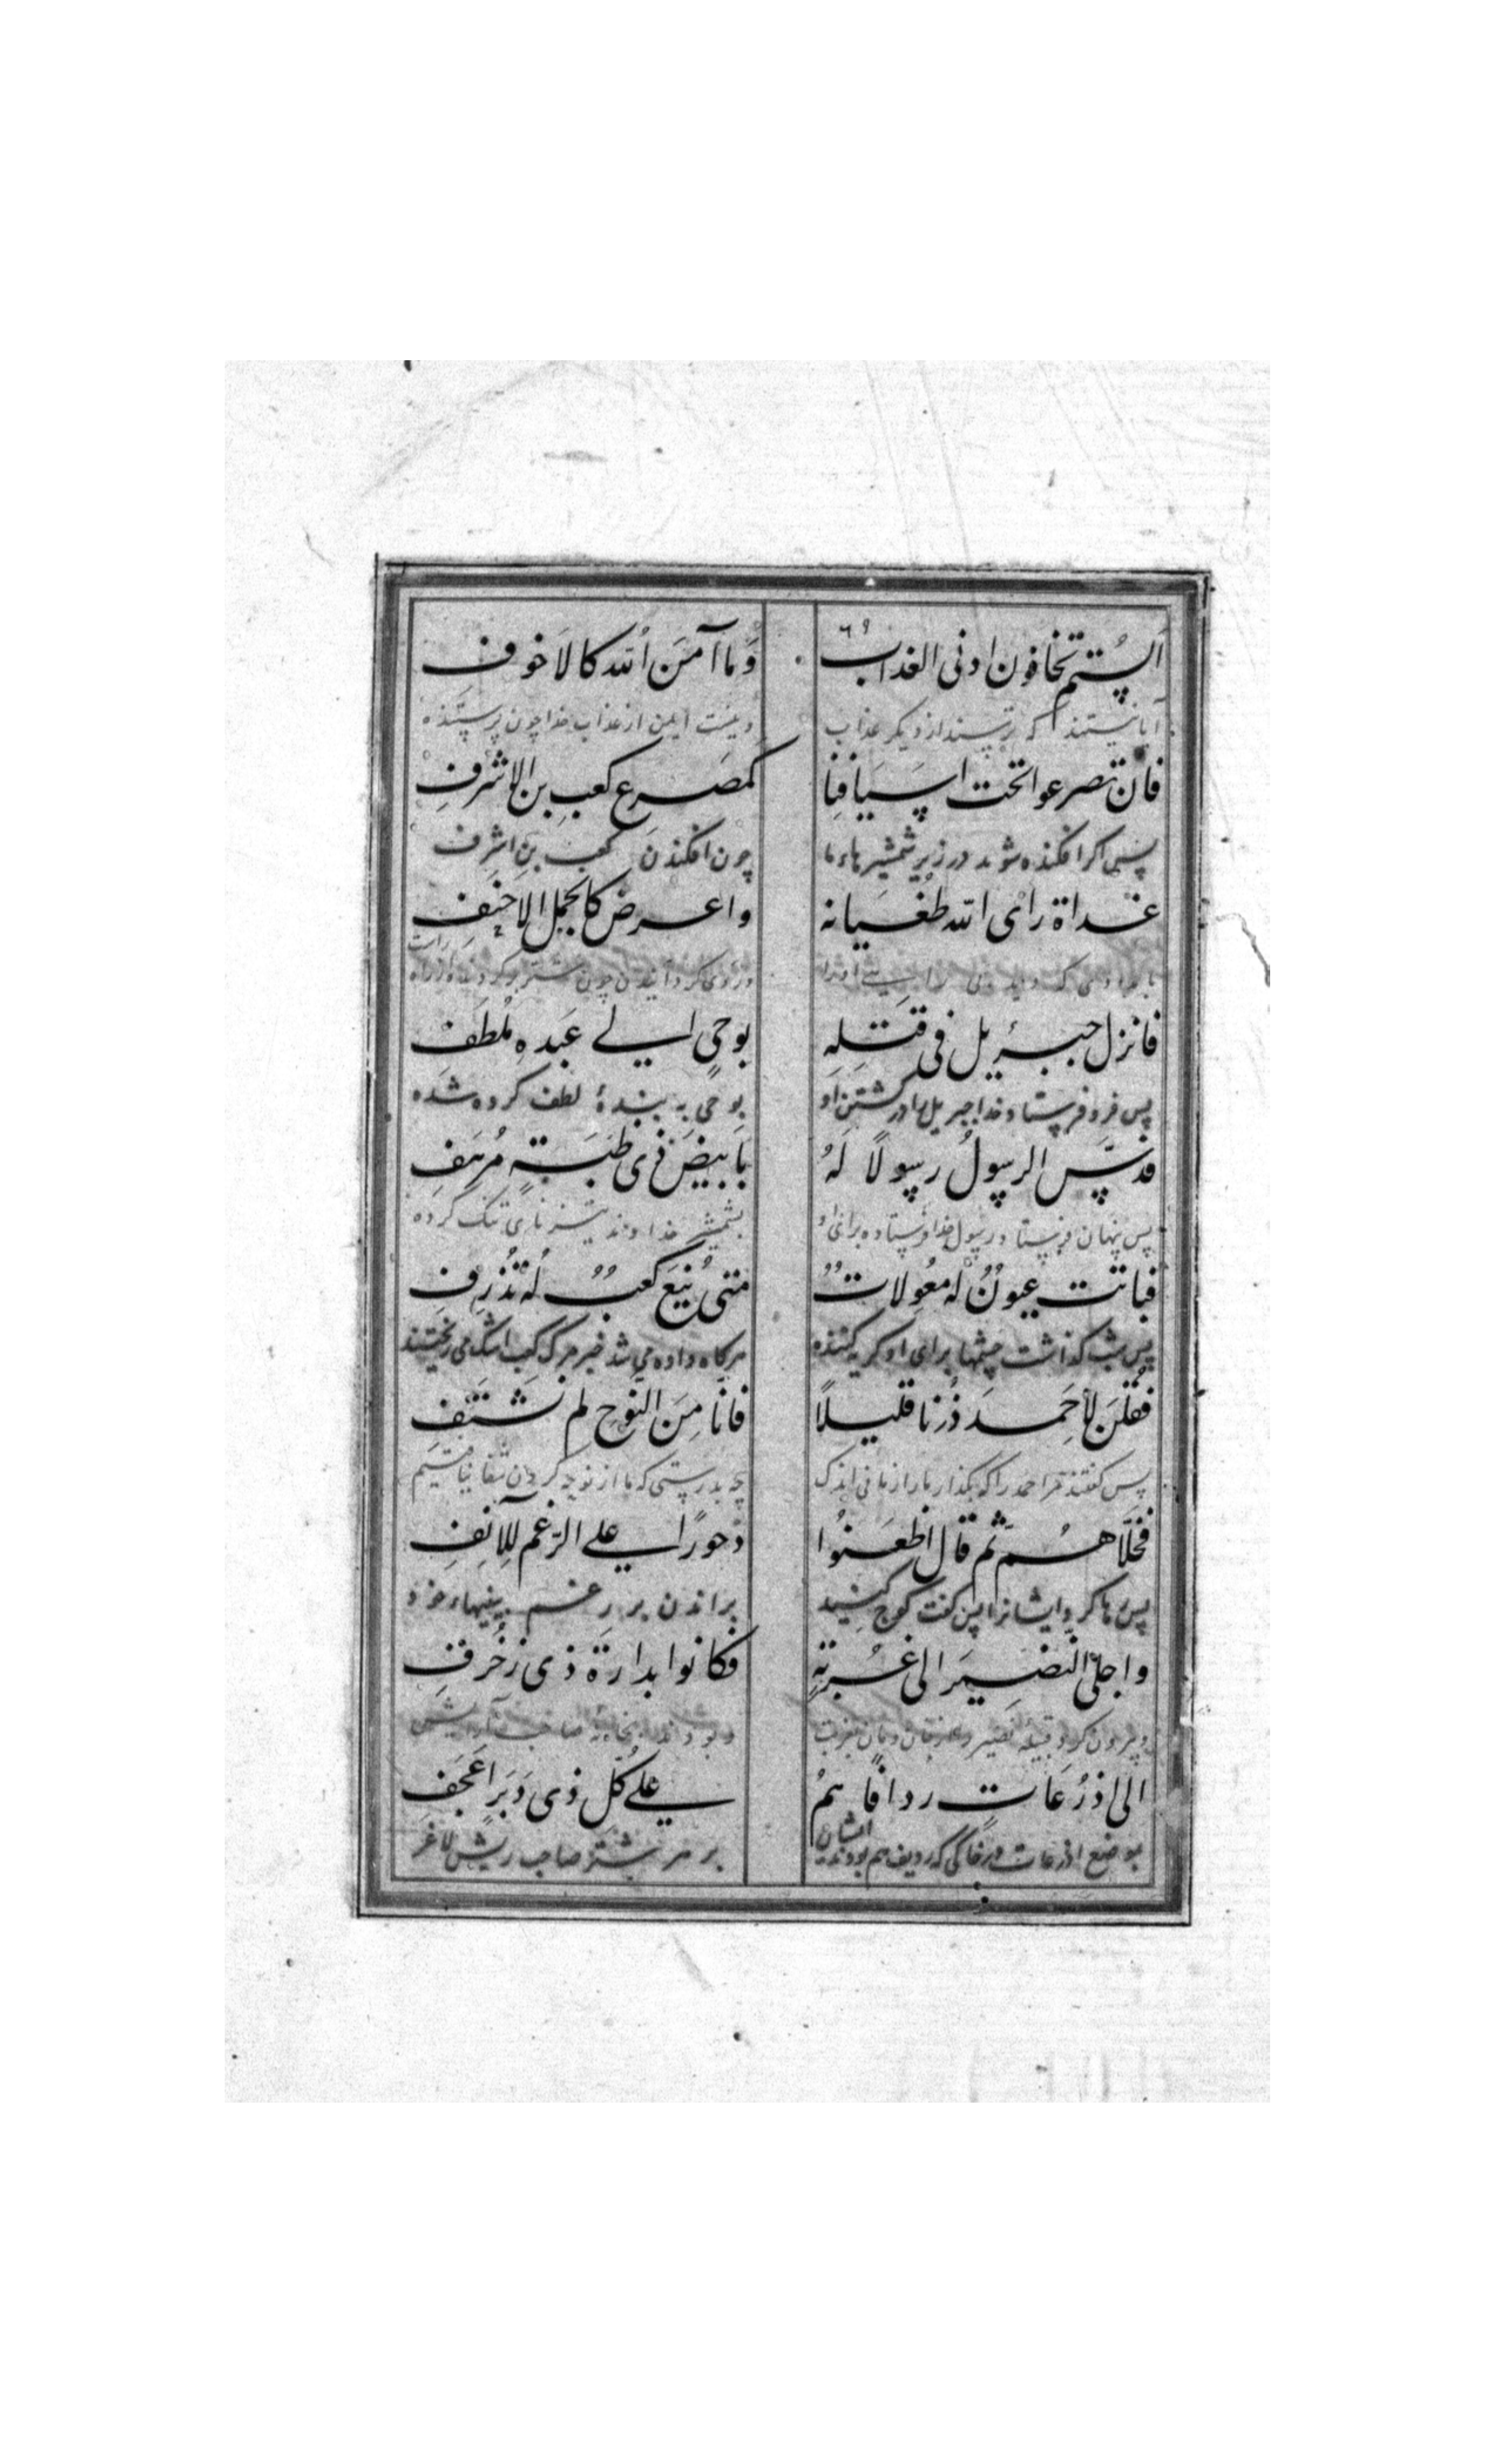 ۶۹
الستم تخافون ادنی العذاب وَما آمَنَ الله کالاَخوف
آیا نیستند که ترسند از دیکر عذاب و نیست ایمن از عذاب خدا چون ترسنده
فان تصرعوا تحت اسیافنا کمصرع کعبِ بن الاشرفِ
پس اکر افکنده شوند در زیر شمشیرهاء ما چون افکندن کعب بن اشرف
غداة رای الله طغیانه واعرض کالجمل الاجنف
فانزل جبریل فی قتلِهِ بوحیٍ الی عَبدهِ مُلطَف
پس فرو فرستاد خدا جبریل را در کشتن او بوحی به بندهٔ لطف کرده شده
فدسّ الرسولُ رسولاً لَهُ بابیضَ ذی ظبَةٍ مُرهَفِ
پس پنهان فرستاد رسول خدا فرستاده برای او بشمشیر خداوند تیز نای تنک کرده
فباتت عیونٌ له معُولاتٌ متی یُنعَ کعبٌ لهُ تذرِف
پس شب کذاشت چشمها برای او کریه کننده هرکاه داده می شد خبر مرک کعب اشک می ریختند
فقلنَ لأحمدَ ذُرنا قلیلاً فانّا مِنَ النَوحِ لم نَشتَف
پس کفتند مر احمد را که بکذار ما را زمانی اندک چه بدرستی که ما از نوحه کردن شفا نیافتیم
فخلّاهُم ثم قال اظعَنُوا دحوراً علی الرّغم للآنُفِ
پس رها کرد ایشانرا پس کفت کوچ کنید براندن بر رغم بینیهاء خود
واجلی النضیرَ الی غُربةٍ فکانوا بدارة ذی زخرفِ
و بیرون کرد قبیله نضیر
الی اذرُعاتٍ ردافًا همُ علی کُلّ ذی دَبَرٍ اَعجَف
بموضع اذرعات که ردیف هم بودند ایشان بر هر شتر صاحب ریش لاغر